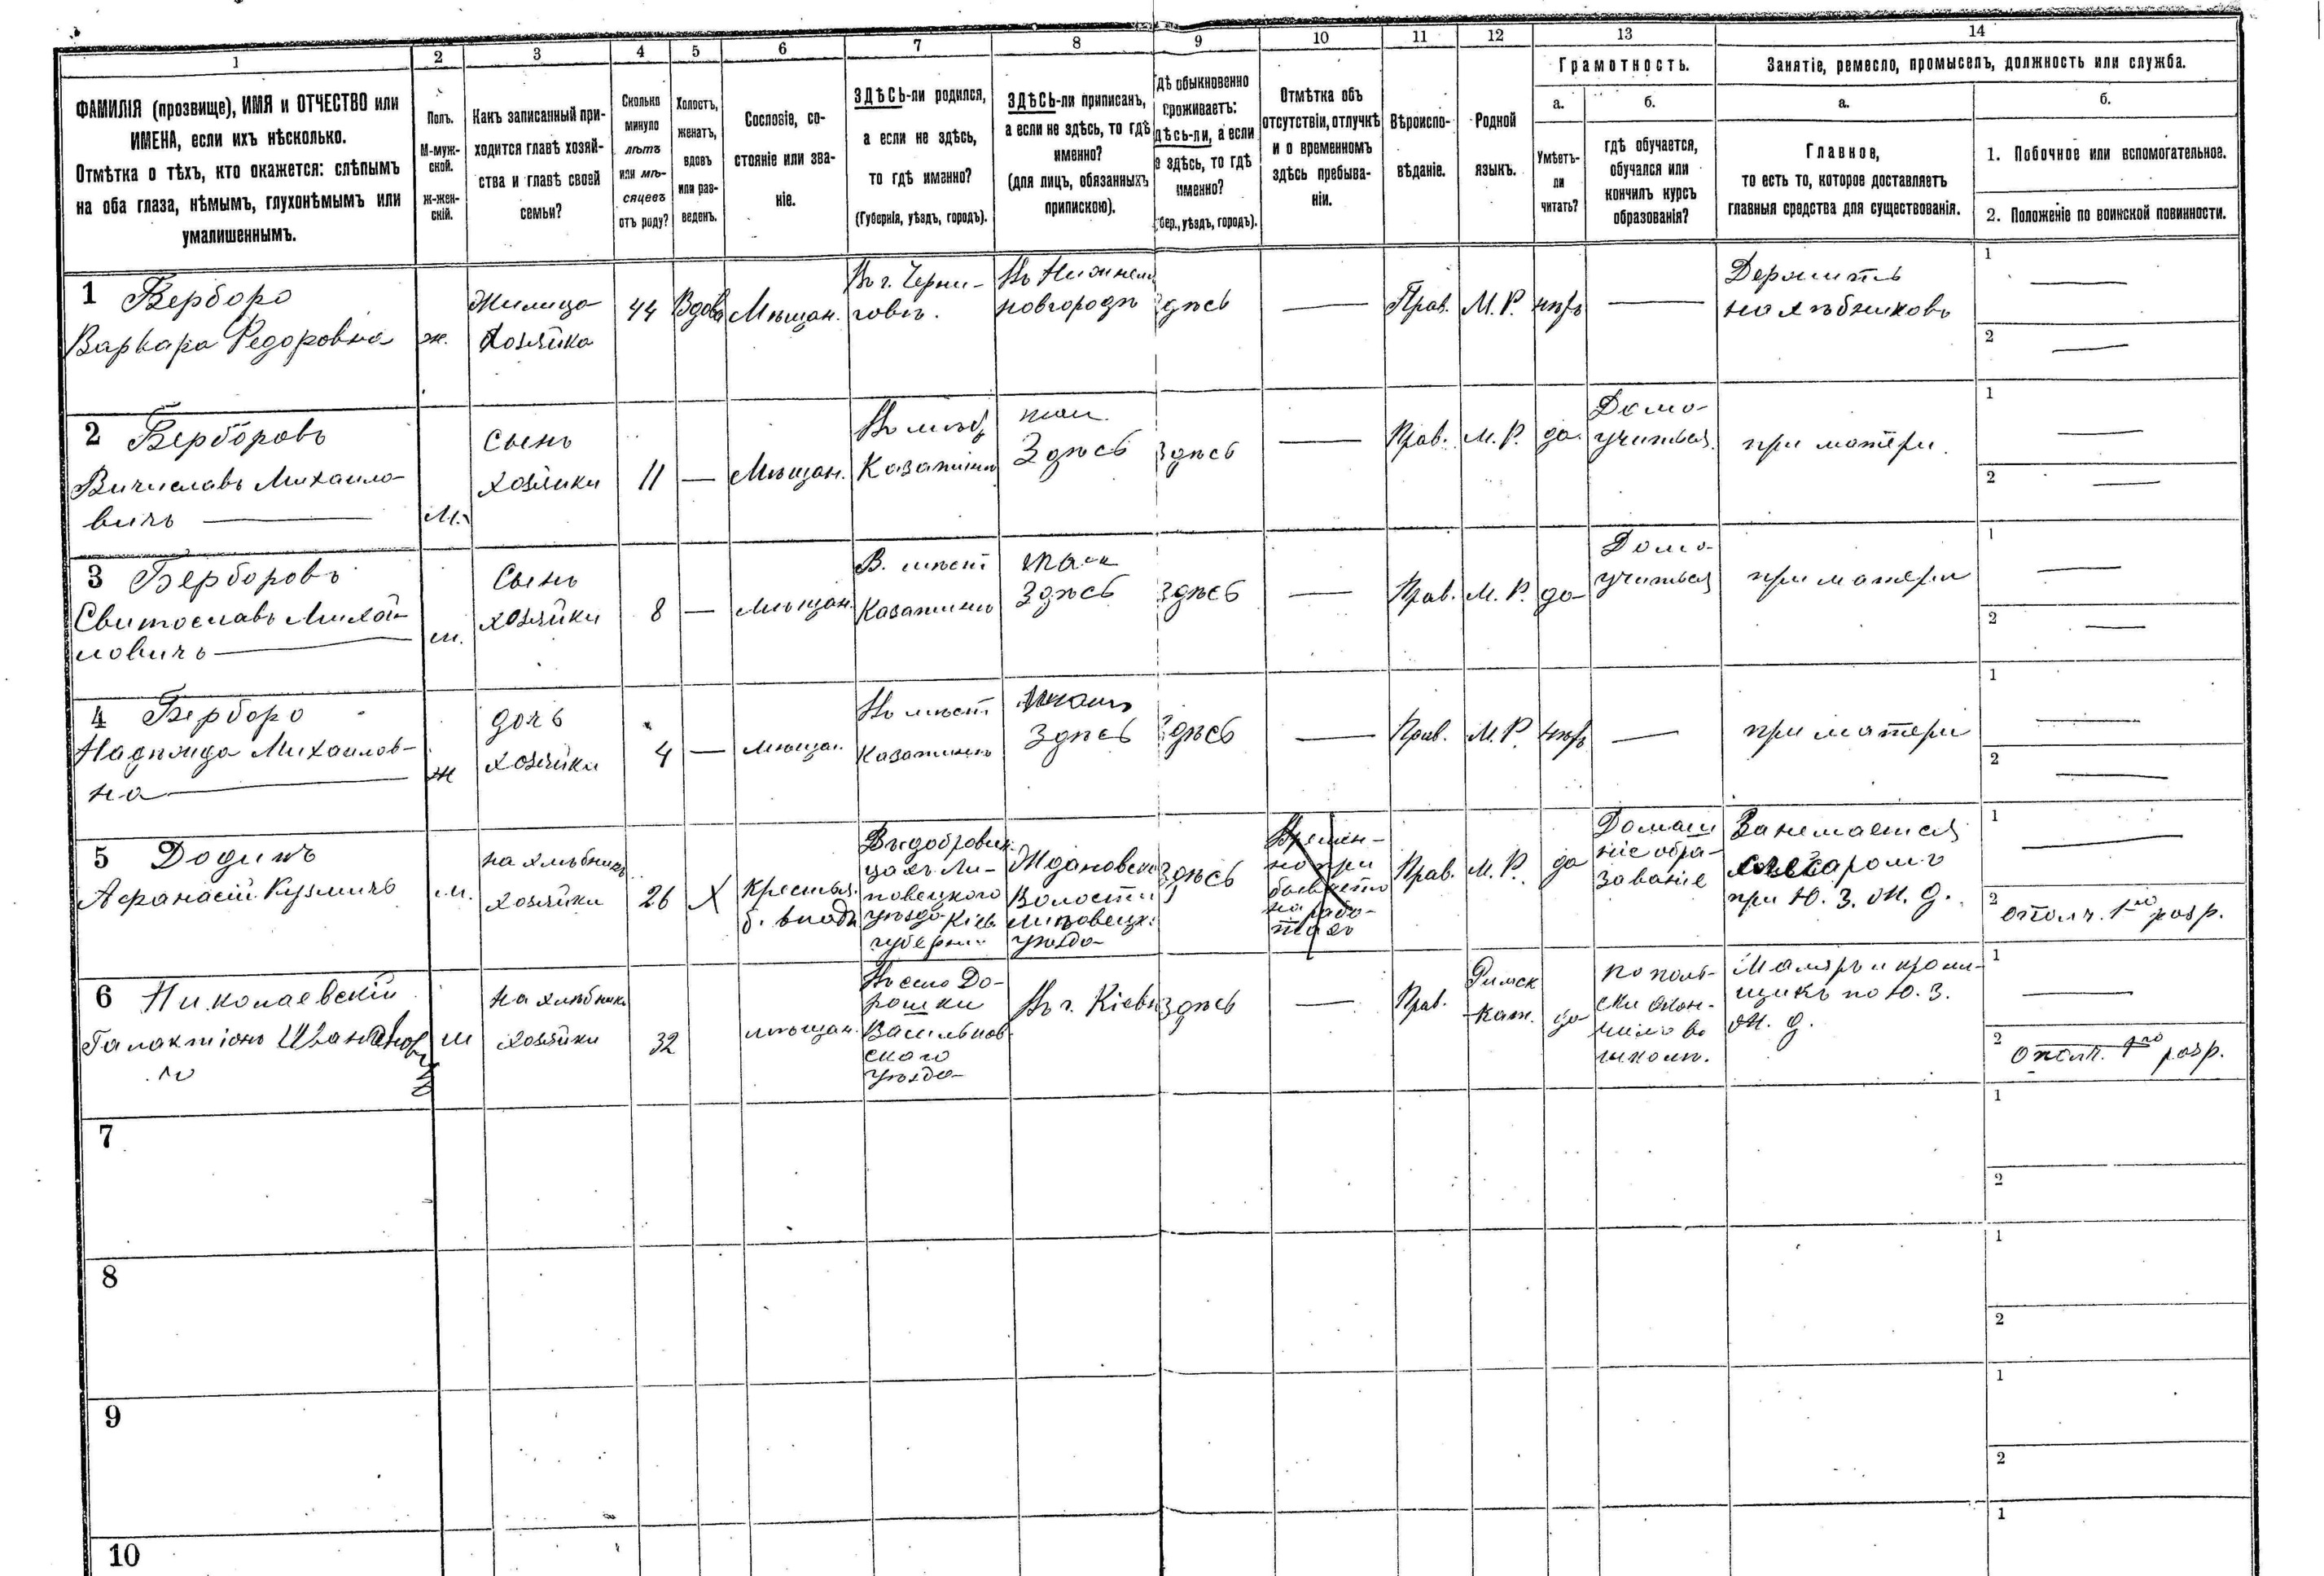 1 2 3 4 5 6 7 8 9 10 11 12 13 14
ФАМИЛІЯ (прозвище), ИМЯ и ОТЧЕСТВО или
ИМЕНА, если ихъ нѣсколько.
Отмѣтка о тѣхъ, кто окажется: слѣпымъ
на оба глаза, нѣмымъ, глухонѣмымъ или
умалишеннымъ.
Полъ.
М-муж-
ской.
ж-жен-
скій.
Какъ записанный при-
ходится главѣ хозяй-
ства и главѣ своей
семьи?
Сколько
минуло
лѣтъ
или мѣ-
сяцевъ
отъ роду?
Холостъ,
женатъ,
вдовъ
или раз-
веденъ.
Сословіе, со-
стояніе или зва-
ніе.
ЗДѢСЬ-ли родился,
а если не здѣсь,
то гдѣ именно?
(Губернія, уѣздъ, городъ).
ЗДѢСЬ-ли приписанъ,
а если не здѣсь, то гдѣ
именно?
(для лицъ, обязанныхъ
припискою).
гдѣ обыкновенно
проживаетъ:
здѣсь-ли, а если
не здѣсь, то гдѣ
именно?
(губер., уѣздъ, городъ).
Отмѣтка объ
отсутствіи, отлучкѣ
и о временномъ
здѣсь пребыва-
ніи.
Вѣроиспо-
вѣданіе.
Родной
языкъ.
Грамотность.
а.
Умѣетъ-
ли
читать?
б.
гдѣ обучается,
обучался или
кончилъ курсъ
образованія?
Занятіе, ремесло, промыселъ, должность или служба.
а.
Главное,
то есть то, которое доставляетъ
главныя средства для существованія.
б.
1. Побочное или вспомогательное.
2. Положеніе по воинской повинности.
1 Верборо
Варвара Федоровна
ж.
Жилица
Хозяйка
44
Вдова
Мѣщан.
Въ г. Черни-
говѣ.
Въ Нижнем
новгородѣ
здѣсь
—
Прав.
М. Р.
нѣтъ
—
Держитъ
нахлѣбниковъ
1 —
2 —
2 Верборовъ
Вичиславъ Михаило-
вичъ —
М.
Сынъ
хозяйки
11
—
Мѣщан.
Казатинѣ
Здѣсь
здѣсь
—
Прав.
М. Р.
да.
Дома
учиться.
при матери.
1 —
2 —
3 Берборовъ
Свитославъ Михай-
ловичъ —
м.
Сынъ
хозяйки
8
—
мѣщан.
В. мѣст
Казатинѣ
Здѣсь
здѣсь
—
Прав.
М. Р.
да
Дома
учиться
при матери
1 —
2 —
4 Верборо
Надѣжда Михаилов-
на —
ж
дочь
хозяйки
4
—
мѣщан.
Въ мѣст
Казатинѣ
Здѣсь
здѣсь
—
Прав.
М. Р.
нѣтъ
—
при матери
1 —
2 —
5 Додинъ
Афанасій Кузмичъ
м.
нахлѣбникъ
хозяйки
26
Х
крестьян.
цахъ Ли-
повецкаго
уѣзда Кіев.
губерніи
Ждановской
Волости
Липовецк.
уѣзда
здѣсь
Времен-
но при
бываетъ
на рабо-
тах
Прав.
М. Р.
да
Домаш
ніе обра-
зованіе
Занемается
слесаромъ
при Ю. З. Ж. Д.
1 —
2 ополч. 1го разр.
6 Николаевскій
Галактіонъ
м
нахлѣбникъ
хозяйки
32
мѣщан.
Въ селѣ До-
рошки
Васильков-
скаго
уѣзда
Въ г. Кіевѣ
здѣсь
—
Прав.
Римск
кат.
да
по поль-
ски окон-
чилъ въ
Маляръ и
по Ю. З.
Ж. Д.
1 —
2 Ополч. 1го разр.
7
1
2
8
1
2
9
1
2
10
1